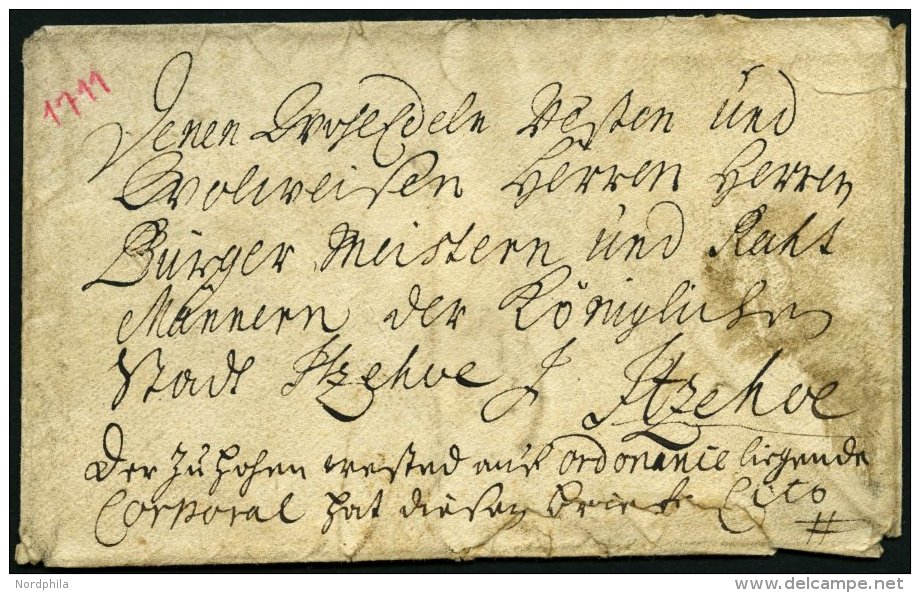 1711
Denen GrohsEdeln Vesten und
Wolweisen Herren Herren
Bürger Meistern und Raht
Männern der Königlichen
Stadt Itzehoe
Itzehoe
Der zu hohen wested auf ordonance liegende
Corporal hat diesen brief Cito
Nordphila
www.delcampe.net